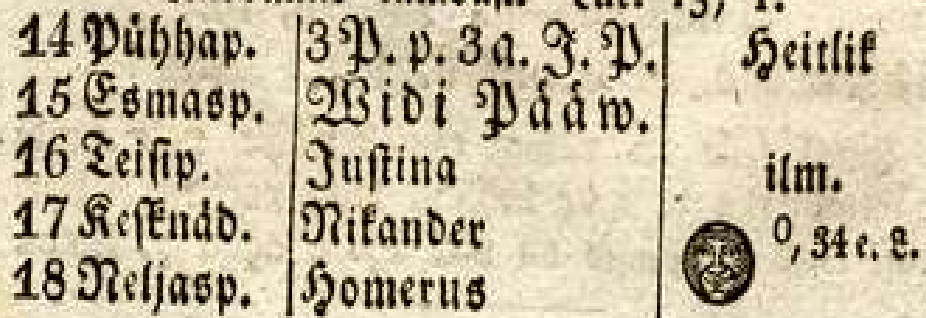 14 Pühhap. 3 P. p. 3 a. J. P. Heitlik
15 Esmasp. Widi Pääw.
16 Teisip. Justina ilm.
17 Kesknäd. Nikander 0, 34 e. L.
18 Neljasp. Homerus